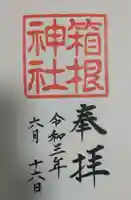 奉拝
箱根
神社
令和三年
六月 十六日